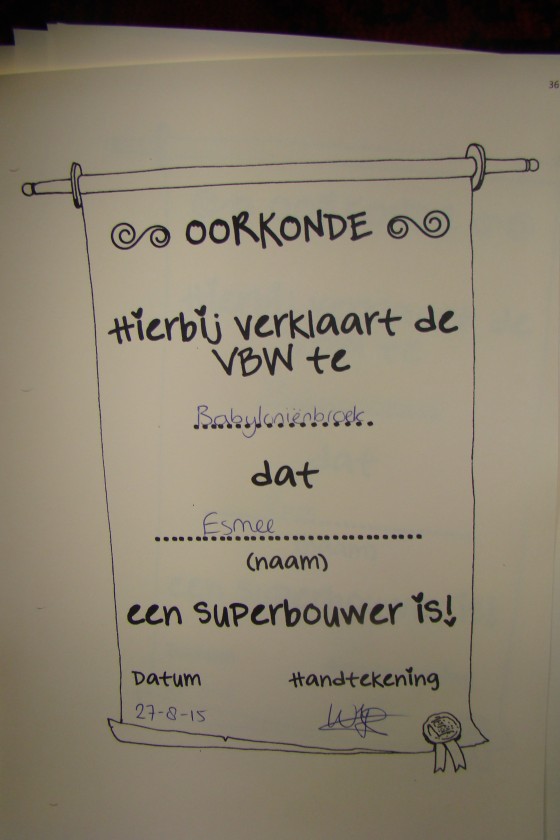 36
OORKONDE
Hierbij verklaart de
VBW te
Babyloniënbroek
dat
Esmee
(naam)
een superbouwer is!
Datum Handtekening
27-8-15